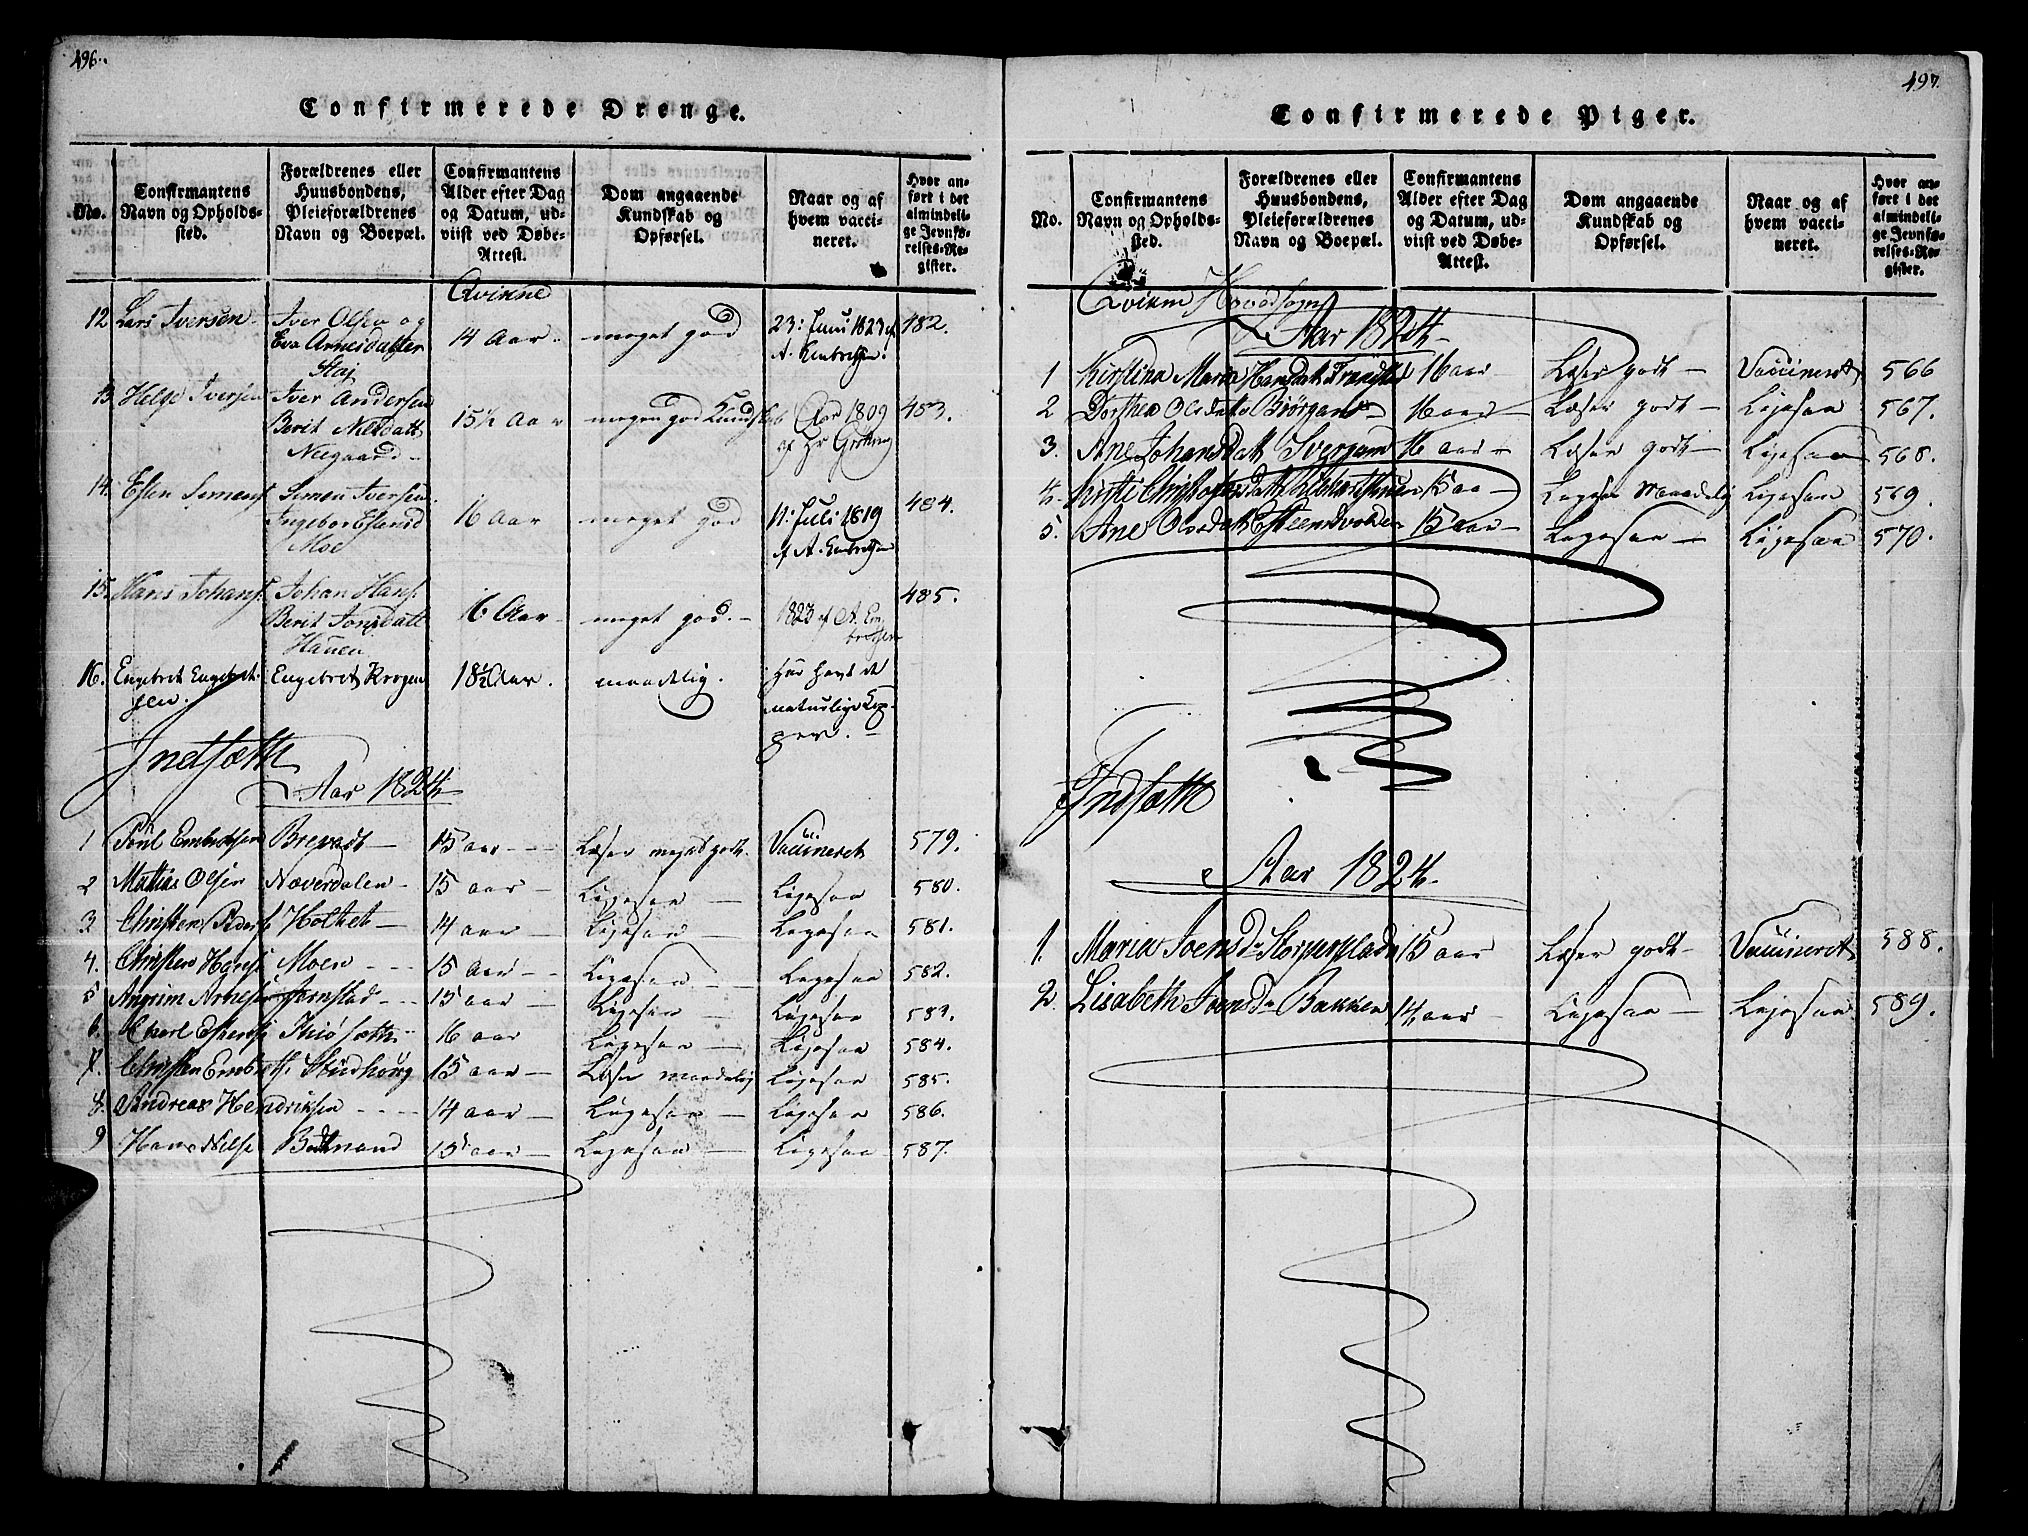 496.
Confirmerede Drenge.
No.
Confirmantens Navn og Opholdssted.
Forældrenes eller Huusbondens, Pleieforældrenes Navn og Boepæl.
Confirmantens Alder efter Dag og Datum, udviist ved Døbe-Attest.
Dom angaaende Kundskab og Opførsel.
Naar og af hvem vaccineret.
Hvor anført i det almindelige Jevnførelses-Register.
Qvikne
12 Lars Iversen Iver Olsen og Eva Arnesdatter Staj 14 Aar meget god 23: Juni 1823 af A. Embretsen. 482.
13 Helge Iversen Iver Andersen Berit Nilsdatt Neegaard 15½ Aar megen god Kundskab Aar 1809 af Hr 453.
14. Esten Simens. Simen Iversen Ingebor Estensd Moe 16 Aar meget god 11: Juli 1819 af A. Embretsen 484.
15. Hans Johans. Johan Hans. Berit Jonsdatt Hauen 16 Aar meget god. 1823 af A. Embretsen 485.
16. Engebret Engebretsen. Engebret Krogen 18½ Aar. maadelig. Har havt de naturlige Kopper.
Indsæth
Aar 1824
1 Poul Embretsen Brevadt 15 aar Læser meget godt. Vaccineret 579.
2 Mattias Olsen Næverdalen 15 aar Ligesaa Ligesaa 580.
3 Christen Peders. Holthet 14 aar Ligesaa Ligesaa 581.
4. Christen Hans. Moen 15 aar Ligesaa Ligesaa 582.
5 Angrim Arnesen Jernstad 15 aar Ligesaa Ligesaa 583.
6. Estens. Kiøsæth 16 aar Ligesaa Ligesaa 584.
7. Christen Embrets. Stüdhoug 15 aar Læser maadelig Ligesaa 585.
8. Andreas Hendriksen 14 aar Ligesaa Ligesaa 586.
9 Hans Nilse 15 aar Ligesaa Ligesaa 587.
497.
Confirmerede Piger.
No.
Confirmantens Navn og Opholdssted.
Forældrenes eller Huusbondens, Pleieforældrenes Navn og Boepæl.
Confirmantens Alder efter Dag og Datum, udviist ved Døbe-Attest.
Dom angaaende Kundskab og Opførsel.
Naar og af hvem vaccineret.
Hvor anført i det almindelige Jevnførelses-Register.
Qvikne Hovedsogn
Aar 1824
1 Kirstina Maria Hansdatt 16 aar Læser godt Vaccineret 566
2 Dorthea Olsdatt Biørgan 16 aar Læser godt Ligesaa 567.
3. Ane Johansdatt 16 aar Læser godt Ligesaa 568.
4. Kirsti Christophersdatt 15 aar Læser Maadelig Ligesaa 569
5. Ane Olsdatt 15 aar Ligesaa Ligesaa 570.
Indsæth
Aar 1824.
1. Maria Ivensd. 15 aar Læser godt Vaccineret 588.
2. Lisabeth Ivensd Bakken 14 aar Ligesaa Ligesaa 589.